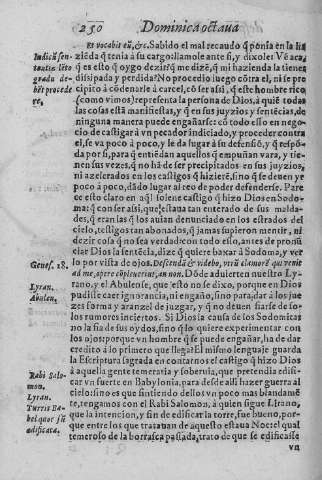 250 Dominica octaua
Et vocabit eũ, &c. Sabido el mal recaudo q̃ ponia en la ha
ziẽda q̃ tenia à su cargo: llamole ante si, y dixole: Vé acà,
q̃ es esto q̃ oygo dezir? q̃ me dizẽ, q̃ mi hazienda la tienes
dissipada y perdida? No procedio luego cõtra el, ni se pre
cipito à cõdenarle à carcel, cõ ser assi, q̃ este hombre rico
(como vimos) representa la persona de Dios, à quiẽ todas
las cosas està manifiestas, y q̃ en sus juyzios y sentẽcias, de
ninguna manera puede engañarse: cõ todo esso en nego-
cio de castigar à vn pecador indiciado, y proceder contra
el, se va poco à poco, y le da lugar à su defensiõ, y q̃ respõ-
da por si, para q̃ entiẽdan aquellos q̃ empuñan vara, y tie-
nen sus vezes, q̃ no hã de ser precipitados en sus juyzios,
ni azelerados en los castigos q̃ hizierẽ, sino q̃ se deuen yr
poco à poco, dãdo lugar al reo de poder defenderse. Pare
ce esto claro en aql̃ solene castigo q̃ hizo Dios en Sodo-
ma: q̃ con ser assi, que estaua tan enterado de sus malda-
des, q̃ eran las q̃ los auian denunciado en los estrados del
cielo, testigos tan abonados, q̃ jamas supieron mentir, ni
dezir cosa q̃ no sea verdad: con todo esso, antes de pronũ
ciar Dios la sentẽcia, dize, q̃ quiere baxar à Sodoma, y ver
lo por vista de ojos. Descendã & videbo, vtrũ clamorẽ qui venit
ad me, opere cõpleuerint, an non. Dõde aduierten nuestro Ly-
rano, y el Abulense, que esto no se dixo, porque en Dios
pudiesse caer ignorancia, ni engaño, sino para dar à los jue
zes forma y aranzel de juzgar, y q̃ no deuen fiarse de so-
los rumores inciertos. Si Dios la causa de los Sodomitas
no la fia de sus oydos, sino q̃ lo quiere experimentar con
los ojos: porque vn hombre q̃ se puede engañar, ha de dar
credito à lo primero que llega? El mismo lenguaje guarda
la Escriptura sagrada en contarnos el castigo q̃ hizo Dios
à aquella gente temeraria y soberuia, que pretendia edifi-
car vn fuerte en Babylonia, para desde alli hazer guerra al
cielo: sino es que sintiendo dellos vn poco mas blandamẽ
te, tengamos con el Rabi Salomon, à quien sigue Lirano,
que la intencion, y fin de edificar la torre, fue bueno, por-
que entre los que trataron de aquesto estaua Noe: el qual
temeroso de la borrasca passada, trato de que se edificasse
vn
Indiciũ sen-
tentiæ lẽto
gradu de-
bèt procede
re.
Genes. 18.
Lyran.
Abulen.
Rabi Salo-
mon.
Lyran.
Turris Ba-
bel quor sũ
ædificata.